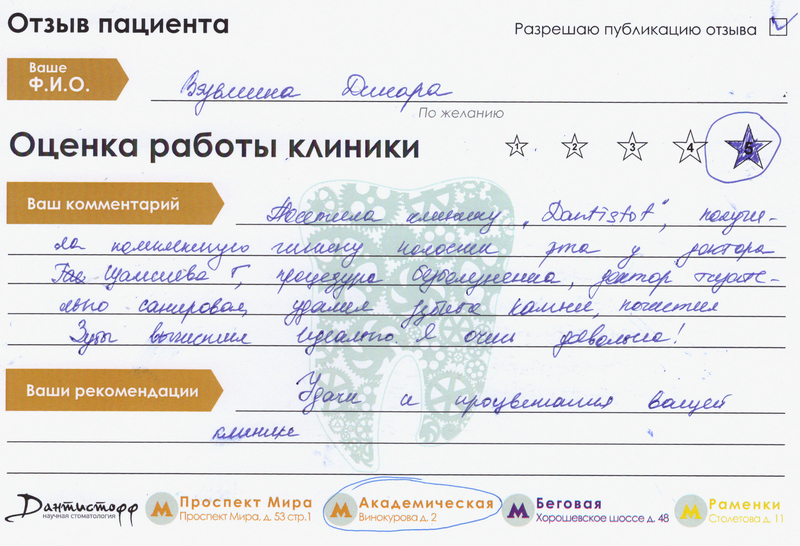 Отзыв пациента
Разрешаю публикацию отзыва
Ваше
Ф.И.О.
Динара
По желанию
Оценка работы клиники
1 2 3 4 5
Ваш комментарий
Посетила клинику „Dantistof", получи-
ла комплексную гигиену полости рта у доктора
Шамсиева Г, процедура безболезненна, доктор тщате-
льно санировал, удалил зубные камни, почистил
Зубы вычистил идеально. Я очень довольна!
Ваши рекомендации
Удачи и процветания вашей
клинике
Дантистофф
научная стоматология
М Проспект Мира
Проспект Мира, д. 53 стр.1
М Академическая
Винокурова д. 2
М Беговая
Хорошевское шоссе д. 48
М Раменки
Столетова д. 11